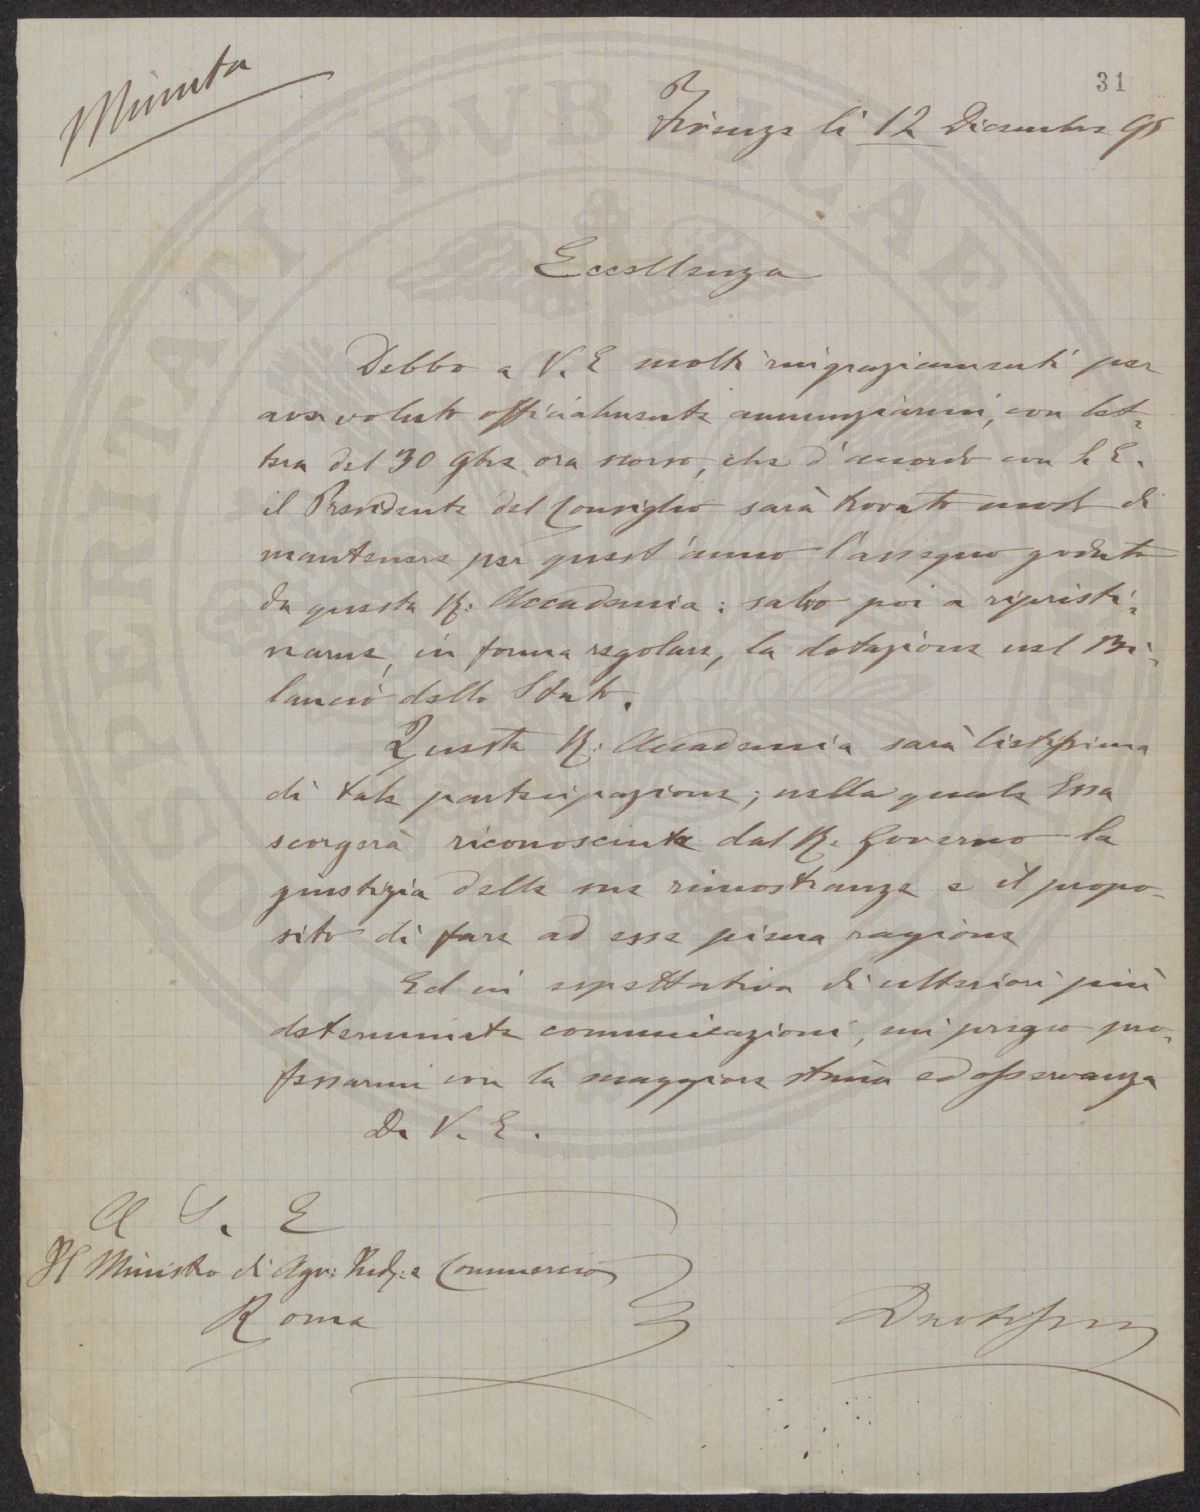 31
Minuta
Firenze li 12 Dicembre 95
Eccellenza
Debbo a V. E molti ringraziamenti per
aver voluto officialmente annunziarmi, con let-
tera del 30 9bre ora scorso, che d'accordo con S. E.
il Presidente del Consiglio sarà trovato modo di
mantenere per quest'anno l'assegno goduto
da questa R: Accademia: salvo poi a ripristi-
narne, in forma regolare, la dotazione nel Bi-
lancio dello Stato.
Questa R: Accademia sarà lietissima
di tale partecipazione; nella quale Essa
scorgerà riconosciute dal R. Governo la
giustizia delle sue rimostranze e il propo-
sito di fare ad esse piena ragione
Ed in aspettativa di ulteriori più
determinate comunicazioni, mi pregio pro-
fessarmi con la maggiore stima ed osservanza
Di V. E.
A S. E
Il Ministro di Agr: Ind: e Commercio
Roma